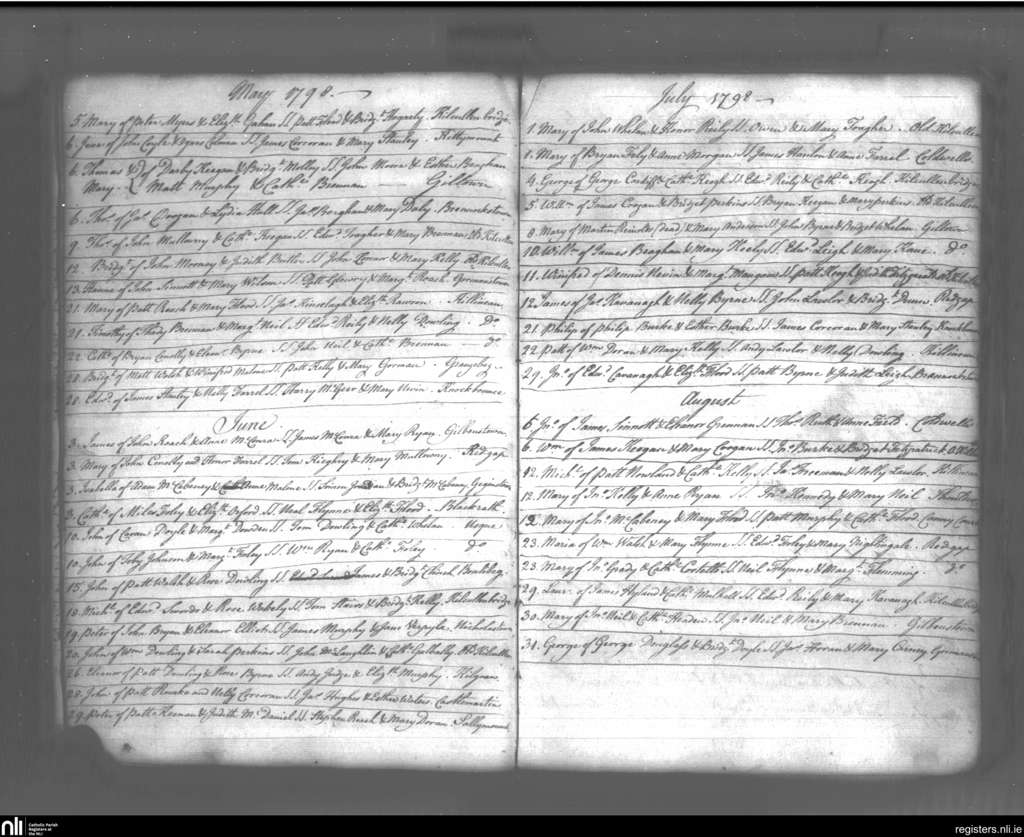 May 1798.
5 Mary of Peter Myers & Eliz.th Gahan SS Patt Flood & Bridg.t Hogarty. Kilcullen bridge
6 Jane of John Coyle & Agnes SS James Corcoran & Mary Stanley. Ballymount
6. Thomas & of Darby Keegan & Bridg.t Molloy SS John Moore & Esther Baughan
Mary. Matt Murphy & Cath.e Brennan Giltown
6. Tho.s of Ja.s & Lydia Hall SS Ja.s & Mary Daly. Brannockstown
9. Tho.s of John & Cath.e Keegan SS Edw.d Fragher & Mary Brennan Old Kilcullen
12. Bridg.t of John & Judith Butler SS John Connor & Mary Kelly Old Kilcullen
13. of John Sinnott & Mary Wilson SS Patt & Marg.t Roach. Gormanstown
21. Mary of Patt Roach & Mary Flood SS Ja.s Kinselagh & Eliz.th Rawson. Killinane
21. Timothy of Thady Brennan & Marg.t Neil SS Edw.d Reily & Nelly Dowling. Do
22. Cath.e of Bryan Conolly & Elean.r Byrne SS John Neil & Cath.e Brennan Do
28. Bridg.t of Matt Welsh & Winifred Malone SS Patt Kelly & Mary Gorman.
28. Edw.d of James Stanley & Molly Farrel SS Harry McGeer & Mary Nevin. Knockbounce
June
3. James of John Roach & Anne SS James & Mary Ryan Gilbenstown
3. Mary of John Conolly and Honor Farrel SS Tom Hughes & Mary Redgap
3. Isabella of Adam McCabeney & Anne Malone SS Simon Jordan & Bridg.t McCabeney
3. Cath.e of Miles Foley & Eliz.th Oxford SS Neal Flynne & Eliz.th Flood. Blackrath
10. John of Doyle & Marg.t SS Tom Dowling & Cath.e Whelan. Usque
10. John of Toby Johnson & Marg.t Foley SS W.m Ryan & Cath.e Foley. Do
15. John of Patt Welsh & Rose Dowling SS James & Bridg.t
18. Mich.l of Edw.d & Rose Wakely SS Tom & Bridg.t Kelly. Kilcullenbridge
19. Peter of John Bryan & Eleanor Elliott SS James Murphy & Jane. Nicholastown
20. John of W.m Dowling & Sarah Perkins SS John McLaughlin & Cath.e Old Kilcullen
26. Elenor of Patt Dowling & Rose Byrne SS Andy Judge & Eliz.th Murphy. Kilgoan
28. John of Patt Rourke and Nelly Corcoran SS Ja.s Hughes & Esther Waters. Castlemartin
29. Peter of Patt Keenan & Judith McDaniel SS Stephen & Mary Doran. Ballymount
July 1798
1. Mary of John Whelan & Honor Reily SS Owen & Mary Fragher. Old Kilcullen
1. Mary of Bryan Foly & Anne Morgan SS James Hanlon & Anne Farrel Coldwells
4. George of George & Cath.e Keogh SS Edw.d Reily & Cath.e Keogh. Kilcullenbridge
5 Will.m of James Corgan & Bridget Perkins SS Bryan Keegan & Mary Perkins. Old Kilcullen
8. Mary of Martin Reinolds (Dead) & Mary Anderson SS John Byrne & Bridget Whelan. Giltown
10. Will.m of James Beaghan & Mary Neely SS Edw.d Leigh & Mary Kane. Do
11. Winifred of Dennis Nevin & Marg.t SS Patt Keogh & Judith Fitzgerald
12. James of Ja.s Kavanagh & Nelly Byrne SS John Lawlor & Bridg.t Dunn. Redgap
21. Philip of Philip Burke & Esther Burke SS James Corcoran & Mary Stanley Knockbounce
22. Patt of W.m Doran & Mary Kelly SS Andy Lawlor & Nelly Dowling. Killinane
29. Jn.o of Edw.d Cavanagh & Eliz.th Flood SS Patt Byrne & Judith Leigh. Brannockstown
August
6. Jn.o of James Sinnott & Elenor Grennan SS Tho.s & Anne Field. Coldwells
6. W.m of James Keegan & Mary Corgan SS Jn.o Burke & Bridget Fitzpatrick O. Kill
12. Mich.l of Patt Nowland & Cath.e Kelly SS Ja.s Freeman & Nelly Lawlor. Killinane
12. Mary of Jn.o Kelly & Anne Ryan SS Jn.o Kennedy & Mary Neil.
12. Mary of Jn.o McCabeney & Mary Flood SS Patt Murphy & Cath.e Flood Carney Court
23. Maria of W.m Walsh & Mary Flynne SS Edw.d Foley & Mary Nightingale. Redgap
23. Mary of Jn.o Grady & Cath.e SS Neil Flynne & Marg.t Flemming. Do
29. Laur.e of James Hyland & Cath.e Mulhall SS Edw.d Reily & Mary Kavanagh. Kilcullenbridge
30. Mary of Jn.o Neil & Cath.e Headen SS Jn.o Neil & Mary Brennan. Gilbenstown
31. George of George Douglass & Bridg.t Doyle SS Ja.s Horan & Mary Carney Gormanstown
nli Catholic Parish Registers at the NLI
registers.nli.ie